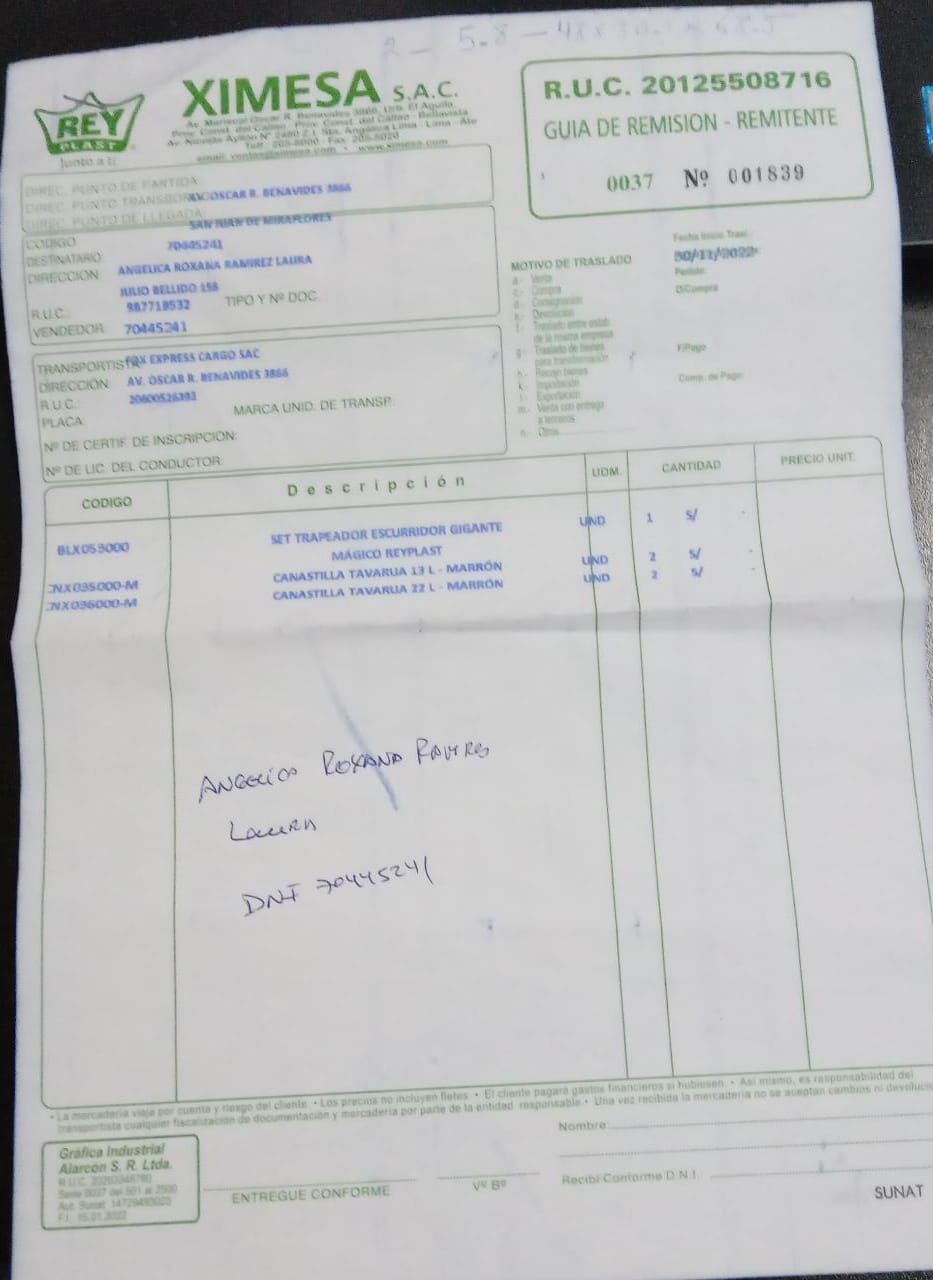 REY
PLAST
Junto a ti
XIMESA S.A.C.
Av. Mariscal Oscar R. Benavides 3866, Urb. El Aguila,
Prov. Const. del Callao - Prov. Const. del Callao - Bellavista
Av. Nicolás Ayllón N° 2480 Z.I. Sta. Angélica Lima - Lima - Ate
www.ximesa.com
R.U.C. 20125508716
GUIA DE REMISION - REMITENTE
0037 Nº 001839
DIREC. PUNTO DE PARTIDA:
DIREC. PUNTO AV. OSCAR R. BENAVIDES 3866
DIREC. PUNTO DE LLEGADA:
SAN JUAN DE MIRAFLORES
CODIGO 70445241
DESTINATARIO
ANGELICA ROXANA RAMIREZ LAURA
DIRECCION
JULIO BELLIDO 158
R.U.C.: 987718532 TIPO Y Nº DOC.
VENDEDOR 70445241
Fecha Inicio Trasl.:
MOTIVO DE TRASLADO 30/11/2022
Pedido:
a.- Venta
c.- Compra O/Compra
d.- Consignación
e.- Devolución
f.- Traslado entre estab.
de la misma empresa
g.- Traslado de bienes F/Pago
para transformación
h.- Recojo bienes
k.- Importación Comp. de Pago:
l.- Exportación
m.- Venta con entrega
a terceros
n.- Otros
TRANSPORTISTA FOX EXPRESS CARGO SAC
DIRECCIÓN AV. OSCAR R. BENAVIDES 3866
R.U.C.: 20600526393
PLACA MARCA UNID. DE TRANSP.
Nº DE CERTIF DE INSCRIPCION:
Nº DE LIC. DEL CONDUCTOR
CODIGO Descripción UDM. CANTIDAD PRECIO UNIT.
BLX053000 SET TRAPEADOR ESCURRIDOR GIGANTE UND 1 S/ -
MÁGICO REYPLAST
CNX035000-M CANASTILLA TAVARUA 13 L - MARRÓN UND 2 S/ -
CNX036000-M CANASTILLA TAVARUA 22 L - MARRÓN UND 2 S/ -
ANGELICA ROXANA
LAURA
DNI 70445241
• La mercadería viaja por cuenta y riesgo del cliente • Los precios no incluyen fletes • El cliente pagará gastos financieros si hubiesen • Así mismo, es responsabilidad del
transportista cualquier fiscalización de documentación y mercadería por parte de la entidad responsable • Una vez recibida la mercadería no se aceptan cambios ni
Nombre
Gráfica Industrial
Alarcon S. R. Ltda.
Serie 0037 del 501 al 2500
F.I. 15.01.2022
ENTREGUE CONFORME Vº Bº Recibí Conforme D.N.I.
SUNAT